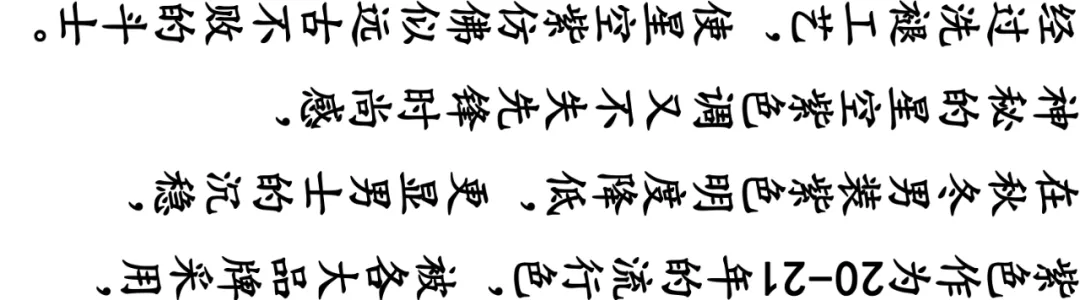 紫色作为20-21年的流行色，被各大品牌采用，
在秋冬男装紫色明度降低，更显男士的沉稳，
神秘的星空紫色调又不失先锋时尚感，
经过洗褪工艺，使星空紫仿佛似远古不败的斗士。